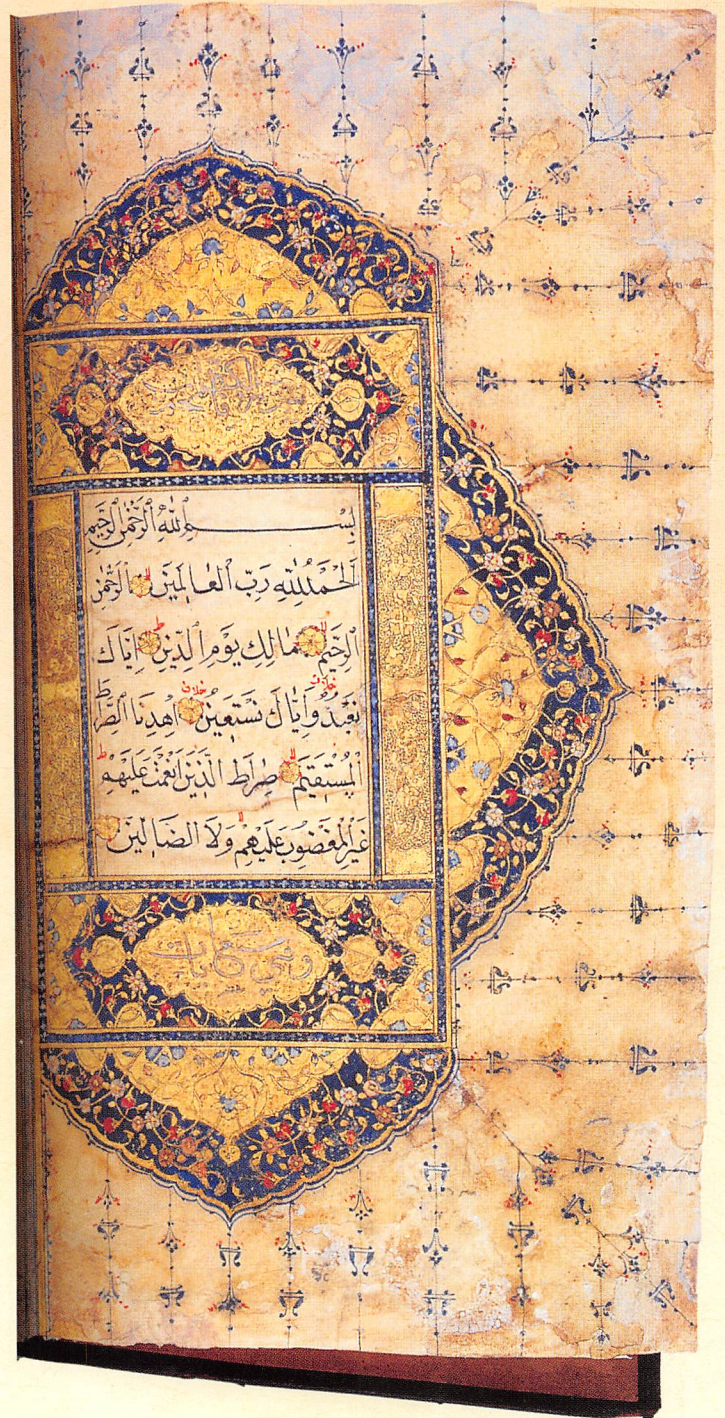 بِسْمِ اللّٰهِ الرَّحْمٰنِ الرَّحِيمِ
اَلْحَمْدُ لِلّٰهِ رَبِّ الْعَالَمِينَ لا اَلرَّحْمٰنِ
الرَّحِيمِ لا مَالِكِ يَوْمِ الدِّينِ ط اِيَّاكَ
نَعْبُدُ وَاِيَّاكَ نَسْتَعِينُ اِهْدِنَا الصِّرَاطَ
الْمُسْتَقِيمَ لا صِرَاطَ الَّذِينَ اَنْعَمْتَ عَلَيْهِمْ ط
غَيْرِ الْمَغْضُوبِ عَلَيْهِمْ وَلَا الضَّالِّينَ